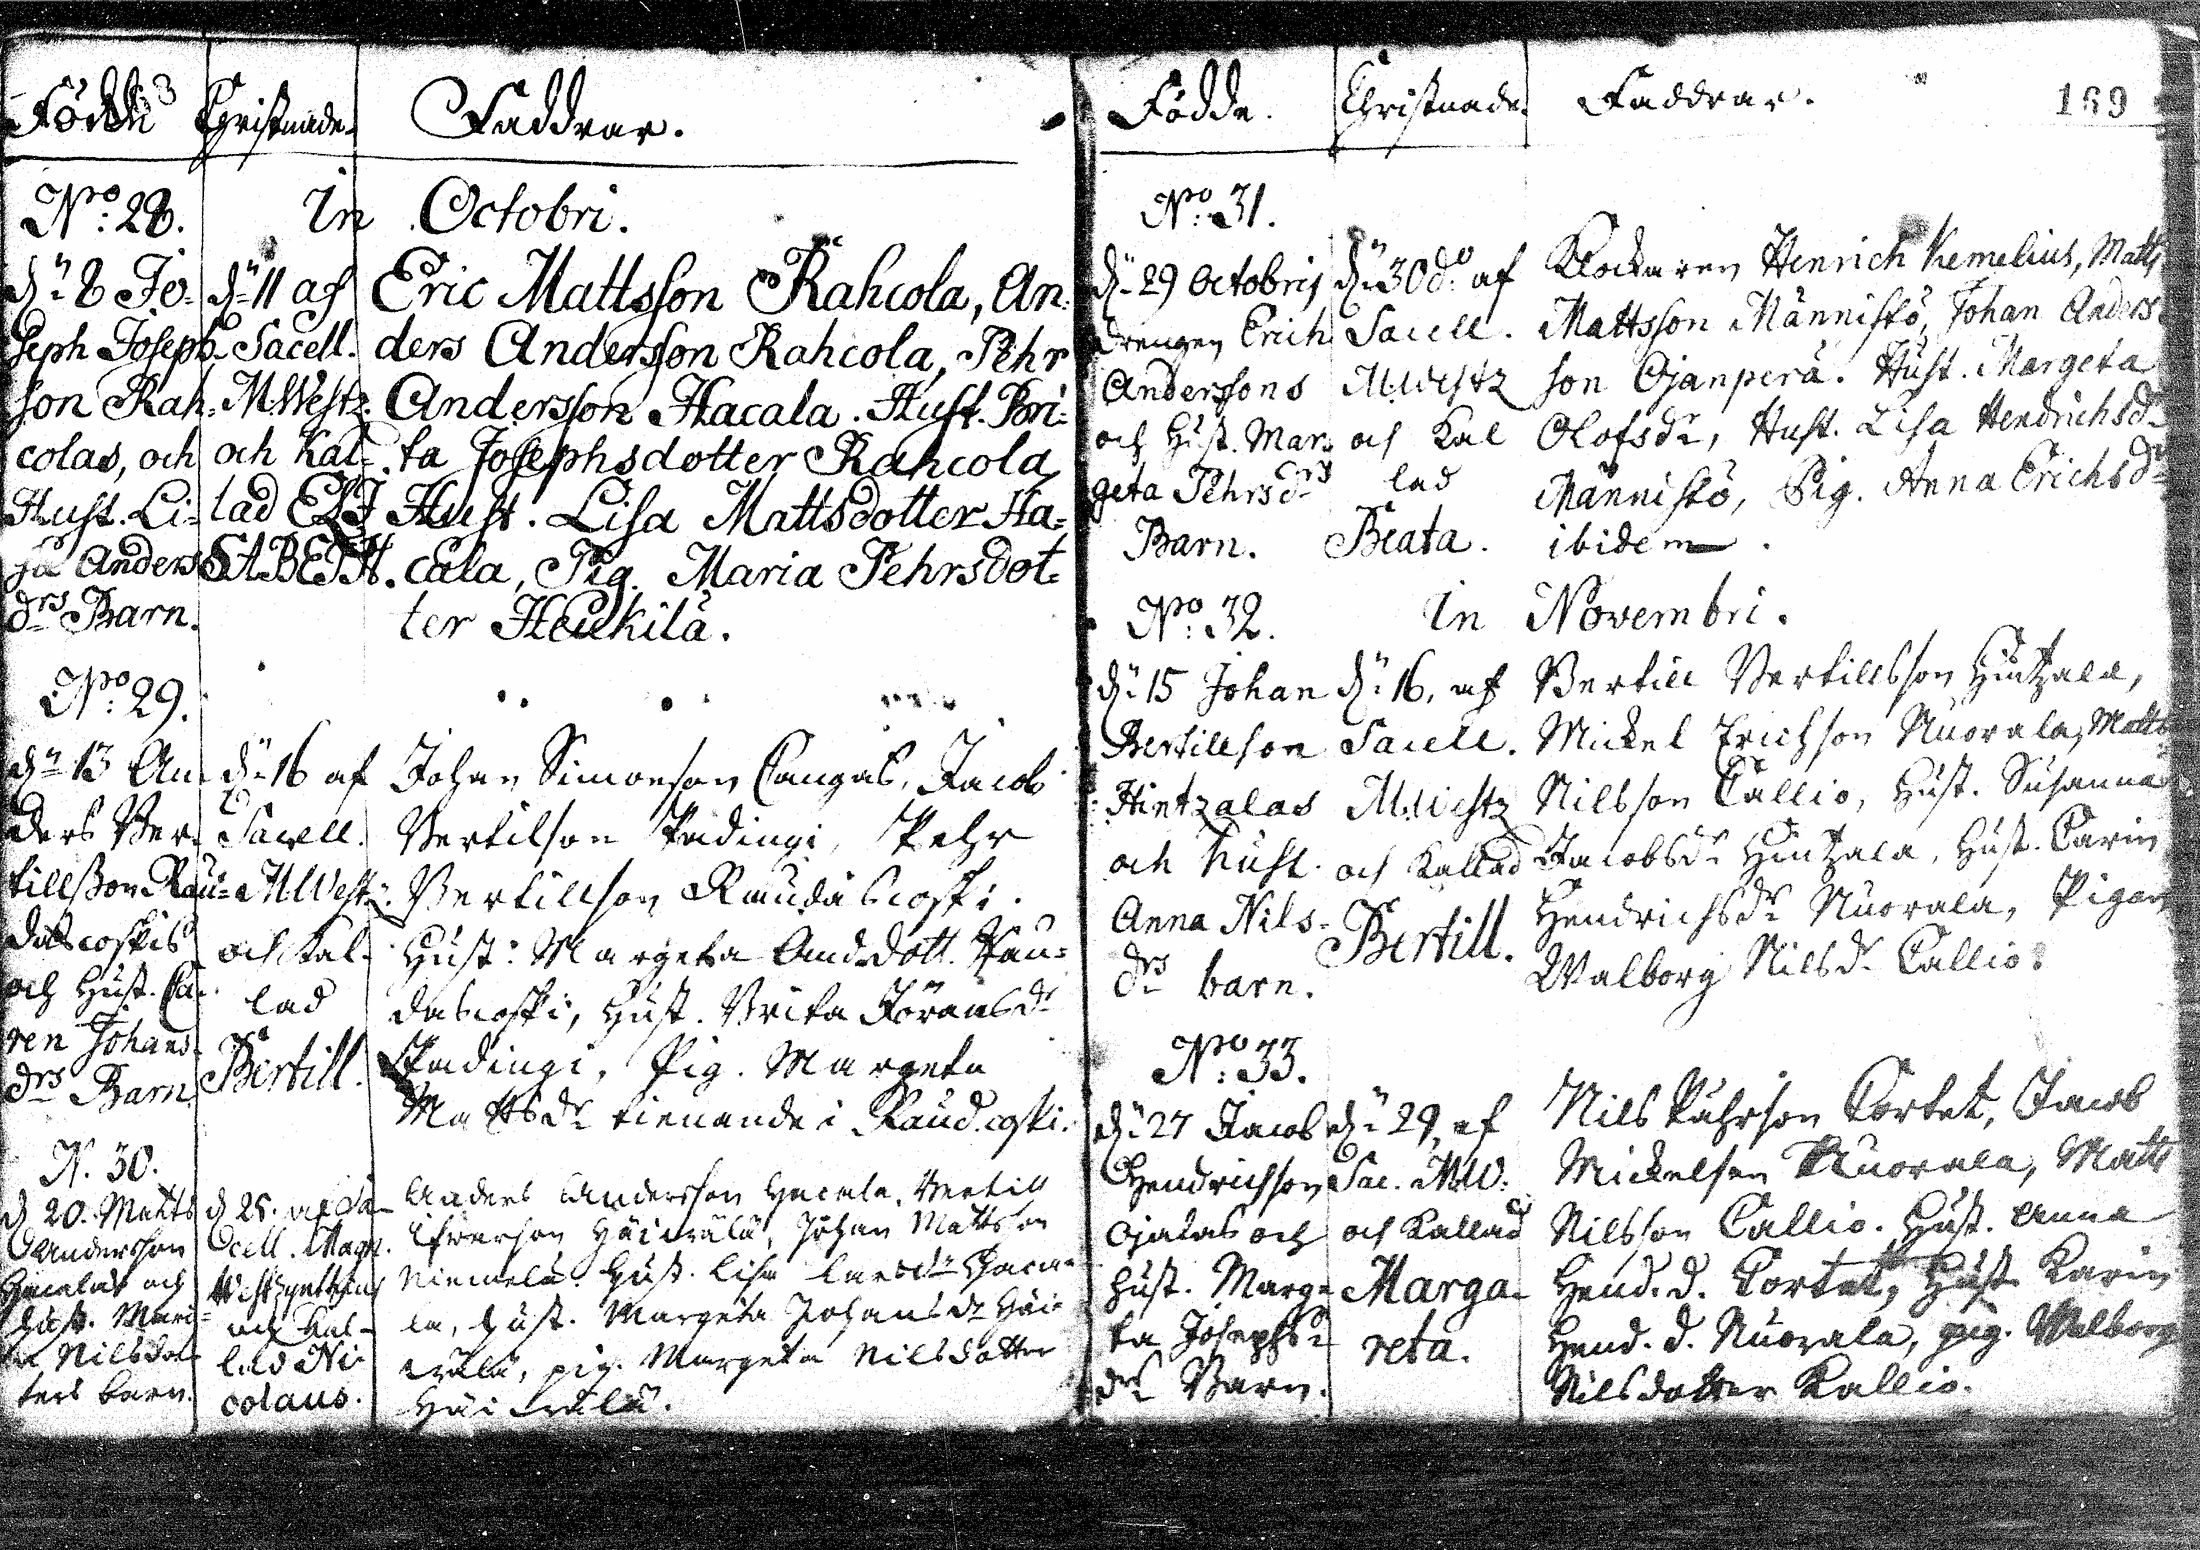 Födde Christnade. Faddrar.
No: 28. In Octobri.
dn 8 Jo-
seph Joseph-
son Rah-
colas, och
Hust. Li-
sa Anders
drs Barn.
dn 11 af
Sacell.
M. Westz.
och kal-
lad ELI
SABETH.
Eric Mattsson Rahcola, An-
ders Andersson Rahcola, Pehr
Andersson Hacala. Hust. Bri-
ta Josephsdotter Rahcola
Hust. Lisa Mattsdotter Ha-
cala, Pig. Maria Pehrsdot-
ter Heikilä.
No: 29.
dn 13 An
ders Ber-
tillsson Rau-
dascoskis
och Hust. Ca-
ren Johans-
drs Barn.
dn 16 af
Sacell.
M. Westz.
och kal-
lad
Bertill.
Johan Simonson Cangas, Jacob
Bertilson Padingi, Pehr
Bertillson Raudascoski.
Hust: Margeta And.dott. Rau-
dascoski, Hust. Brita Jöransdr
Padingi, Pig. Margeta
Mattsdr tienande i Raud.coski.
N. 30.
d 20. Matts
Andersson
Hacalas och
Hust. Mari-
a Nilsdot-
ters barn.
d 25. af Sa-
cell. Magn.
och kal-
lad Ni-
colaus.
Anders Andersson Hacala, Bertill
Ifverson Häicälä, Johan Mattsson
Niemelä. Hust. Lisa Larsdr Haca-
la, Hust. Margeta Johansdr Häi-
cälä, pig. Margeta Nilsdotter
Häicälä.
Födde. Christnade. Faddrar. 169
No: 31.
dn 29 Octobris
drengen Erich
Anderssons
och Hust. Mar-
geta Pehrsdrs
Barn.
dn 30 do af
Sacell.
M. Westz
och Kal
lad
Beata.
Klockaren Henrich Kemelius, Matts
Mattsson Männistö, Johan Anders-
son Ojanperä. Hust. Margeta
Olofsdr, Hust. Lisa Hendrichsdr
Männistö, Pig. Anna Erichsdr
ibidem.
No: 32. In Novembri.
dn 15 Johan
Bertillson
Hintzalas
och Hust.
Anna Nils-
drs barn.
dn 16, af
Sacell.
M. Westz
och kallad
Bertill.
Bertill Bertillsson Hintzala,
Mickel Erichson Nuorala, Matts
Nilsson Callio, Hust. Susanna
Jacobsdr Hintzala, Hust. Carin
Hendrichsdr Nuorala, Pigan
Walborg Nilsdr Callio.
No: 33.
dn 27 Jacob
Hendrichsson
Ojalas och
Hust. Marge-
ta Josephs-
drs Barn.
dn 29, af
Sac. M.W.
och kallad
Marga-
reta.
Nils Pährson Cortet, Jacob
Mickelson Nuorala, Matts
Nilsson Callio. Hust. Anna
Hend. d. Cortet, Hust Karin
Hend. d. Nuorala, pig. Walborg
Nilsdotter Kallio.